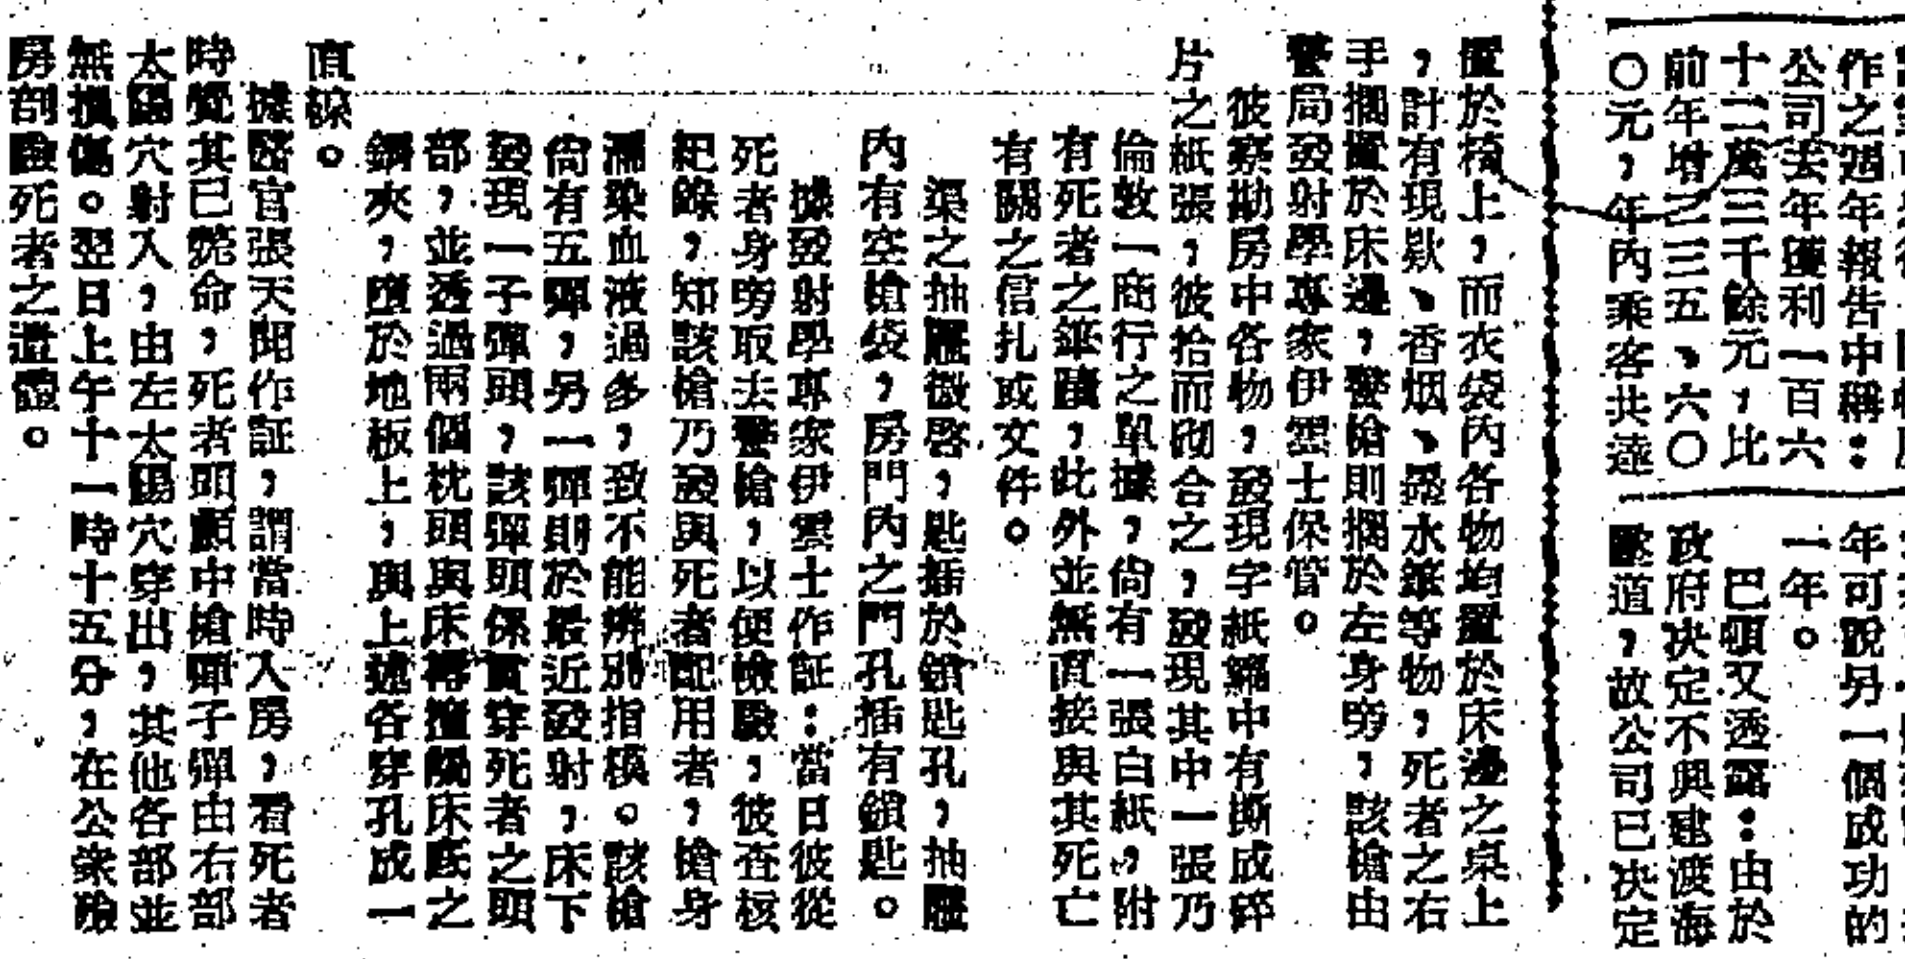 作之週年報告中稱：
公司去年獲利一百六
十二萬三千餘元，比
前年增乙三三五、六〇
〇元，年內乘客共達
年可說另一個成功的
一年。
巴頓又透露：由於
政府决定不興建渡海
隧道，故公司已决定
置於椅上，而衣袋內各物均置於床邊之桌上
，計有現欵、香烟、墨水筆等物，死者之右
手擱置於床邊，警槍則擱於左身旁，該槍由
警局發射學專家伊雲士保管。
彼察勘房中各物，發現字紙簏中有撕成碎
片之紙張，彼拾而砌合之，發現其中一張乃
倫敦一商行之單據，尙有一張白紙，附
有死者之筆蹟，此外並無直接與其死亡
有關之信扎或文件。
渠之抽屜微啓，匙插於鎖匙孔，抽屜
內有空槍袋，房門內之門孔插有鎖匙。
據發射學專家伊雲士作証：當日彼從
死者身旁取去警槍，以便檢驗，彼查核
紀錄，知該槍乃發與死者配用者，槍身
滿染血液過多，致不能辨別指模。該槍
尙有五彈，另一彈則於最近發射，床下
發現一子彈頭，該彈頭係貫穿死者之頭
部，並透過兩個枕頭與床褥撞觸床底之
鋼夾，墮於地板上，與上述各穿孔成一
直線。
據醫官張天聞作証，謂當時入房，看死者
時覺其已斃命，死者頭顱中槍彈子彈由右部
太陽穴射入，由左太陽穴穿出，其他各部並
無損傷。翌日上午十一時十五分，在公衆殮
房剖驗死者之遺體。